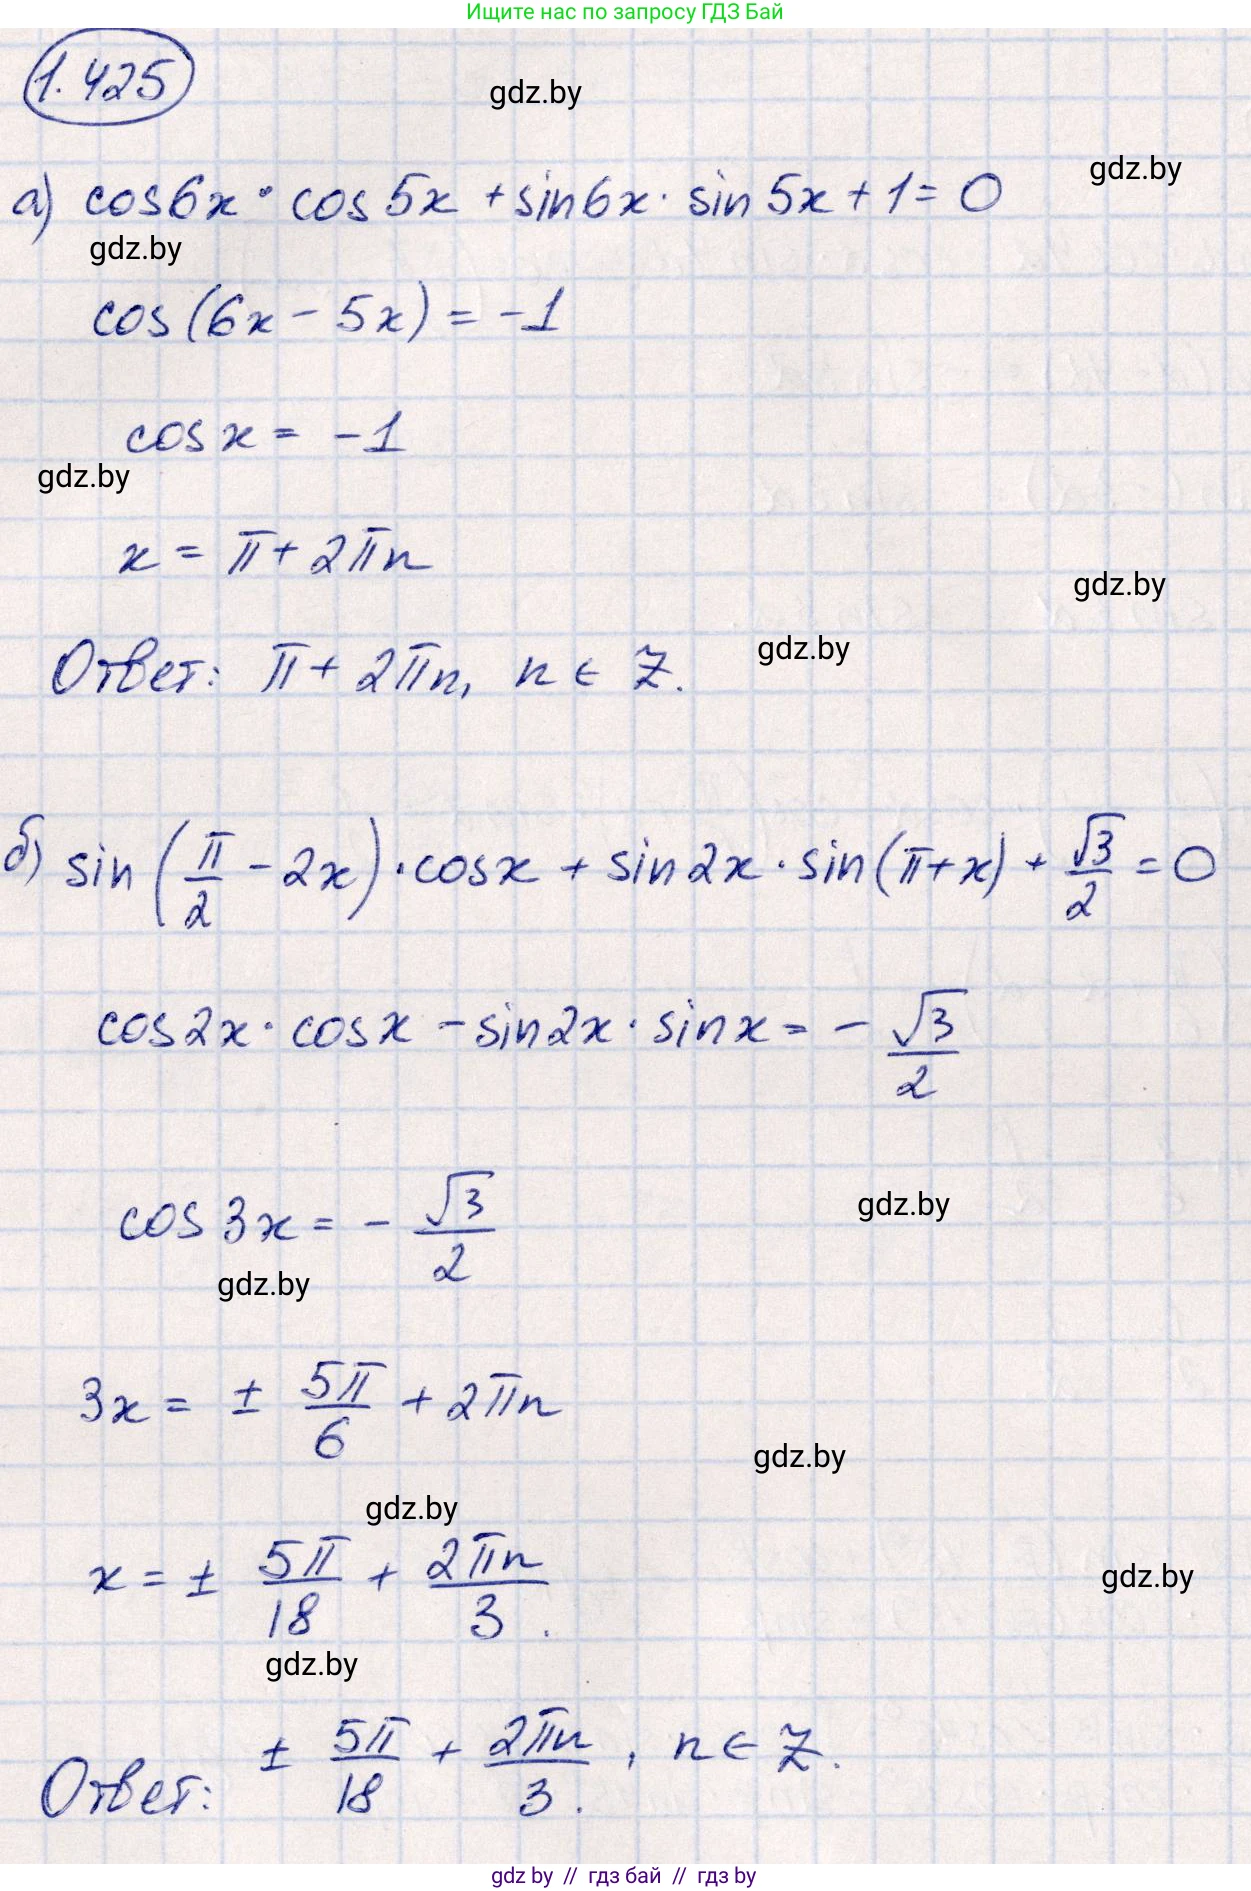 Ищите нас по запросу ГДЗ Бай
1.425
gdz.by
gdz.by
а) cos6x · cos5x + sin6x · sin5x + 1 = 0
gdz.by
cos(6x - 5x) = -1
cos x = -1
gdz.by
x = π + 2πn
gdz.by
gdz.by
Ответ: π + 2πn, n ∈ Z.
б) sin(π/2 - 2x) · cosx + sin2x · sin(π+x) + √3/2 = 0
cos2x · cosx - sin2x · sinx = - √3/2
gdz.by
cos3x = - √3/2
gdz.by
3x = ± 5π/6 + 2πn
gdz.by
gdz.by
x = ± 5π/18 + 2πn/3.
gdz.by
gdz.by
Ответ: ± 5π/18 + 2πn/3., n ∈ Z.
gdz by // гдз бай // гдз by